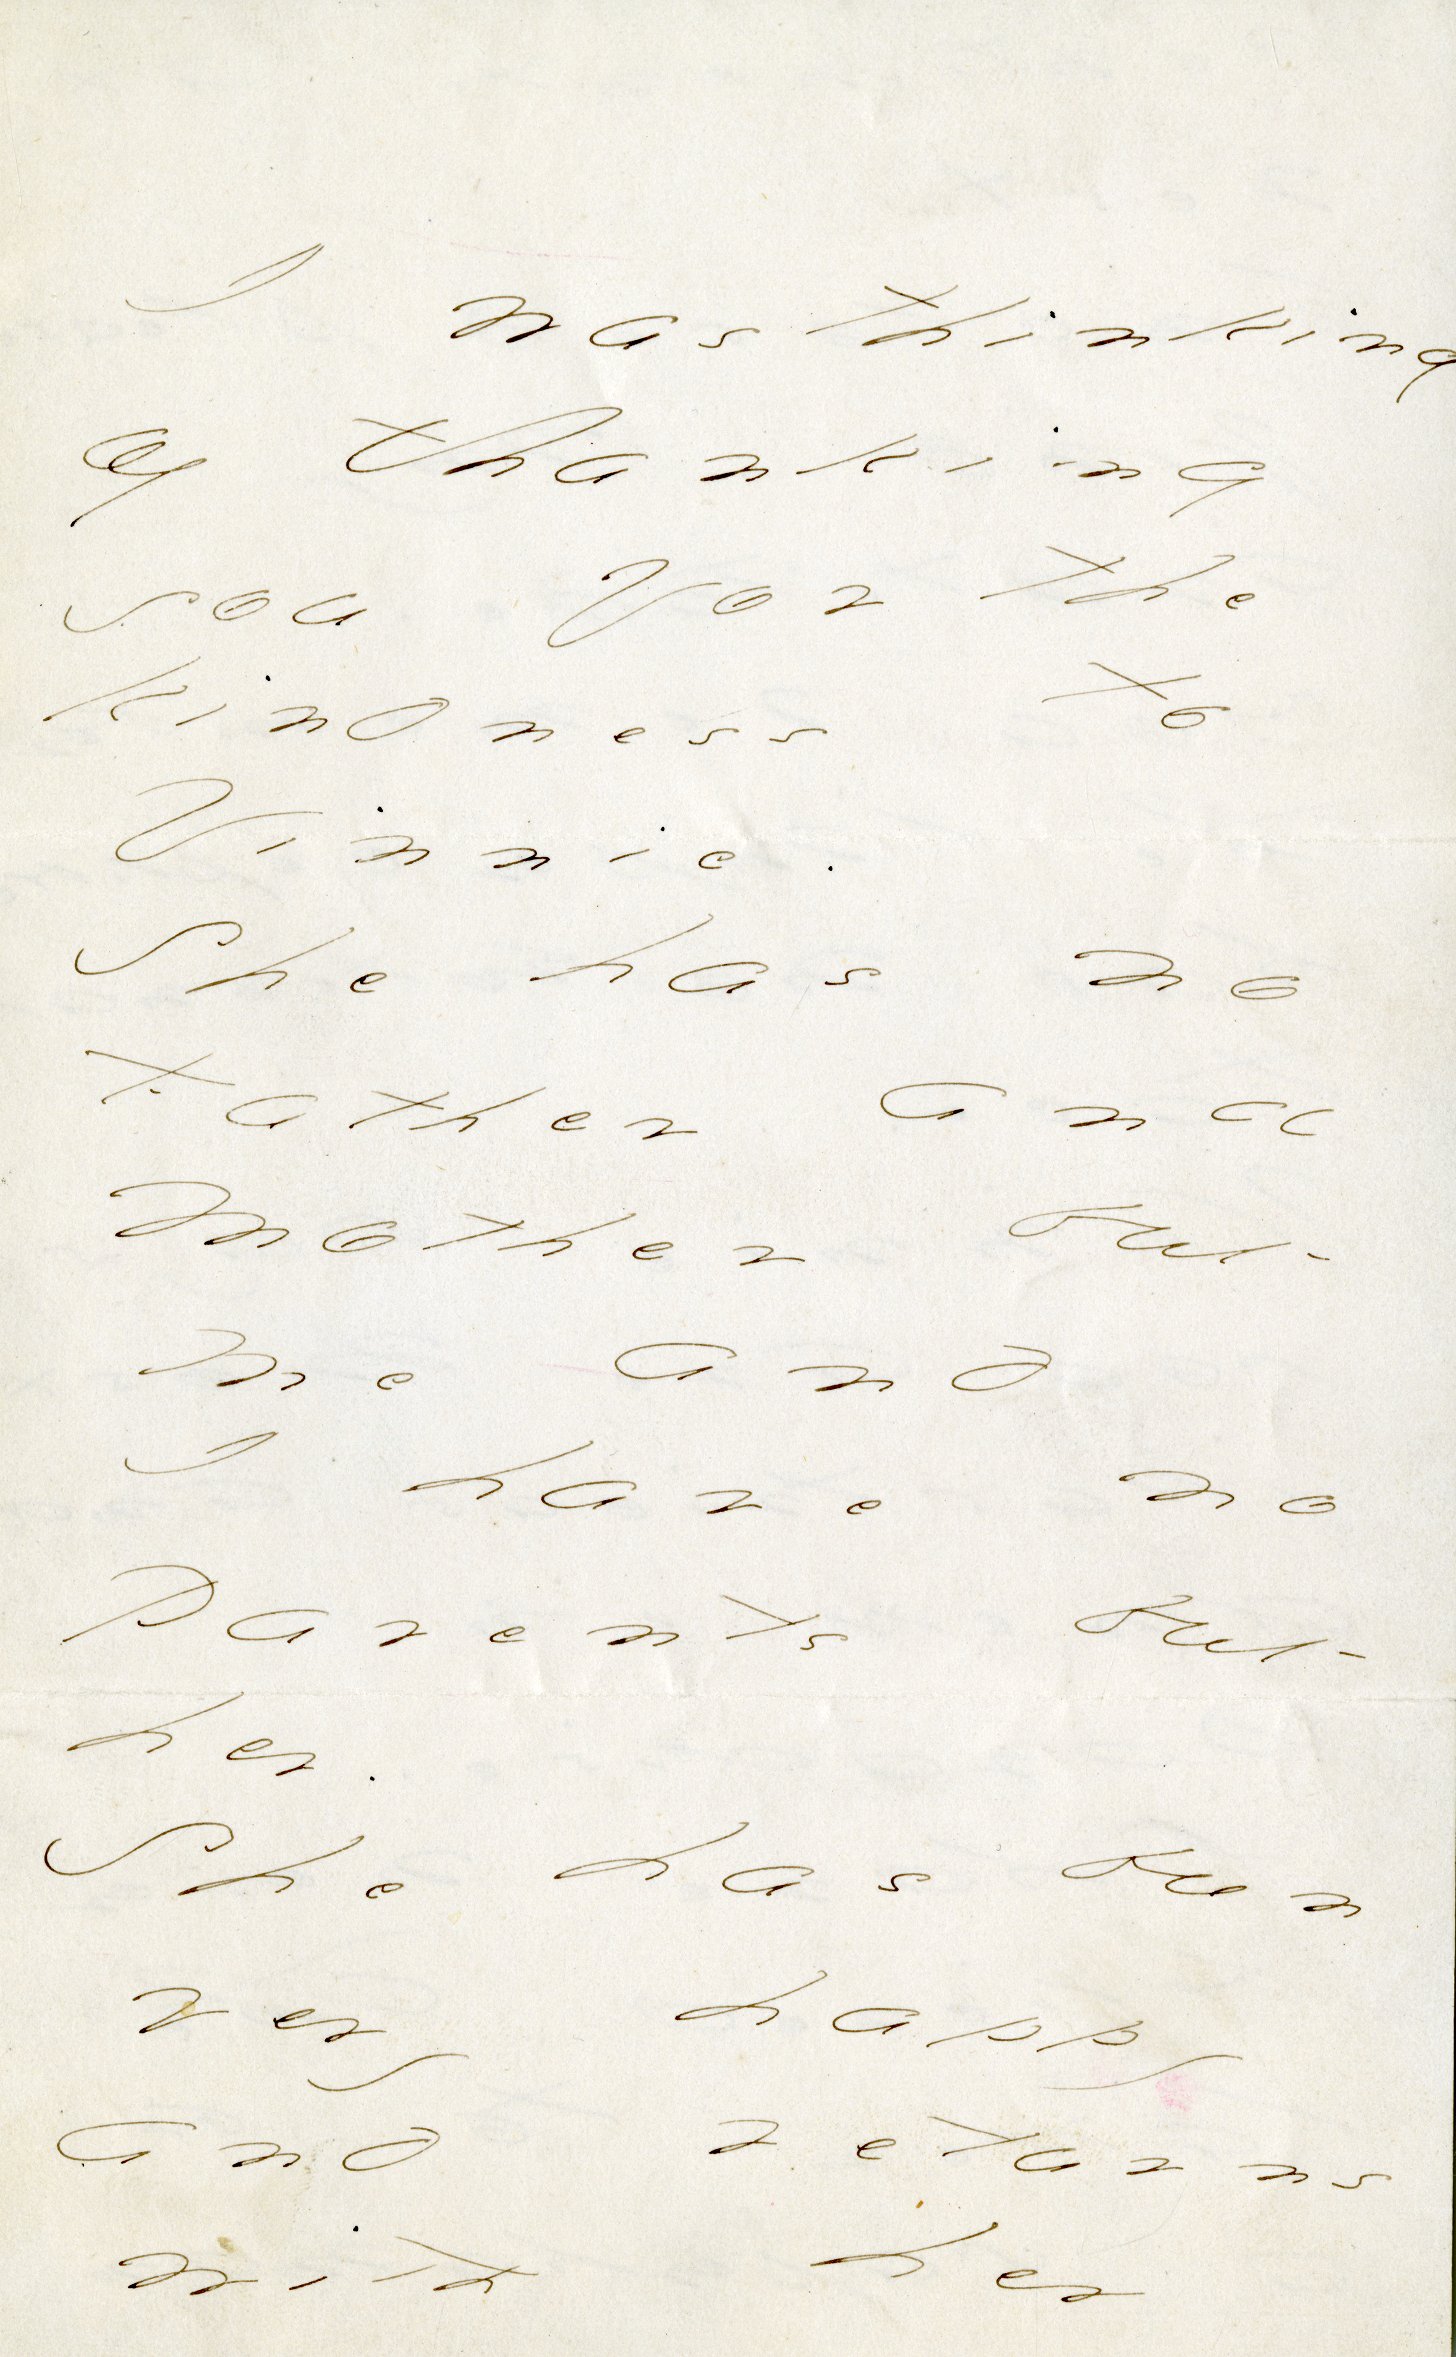 I was thinking
of thanking
you for the
kindness to
Vinnie.
She has no
Father and
Mother but
me and
I have no
Parents but
her.
She has been
very happy
and returns
with her